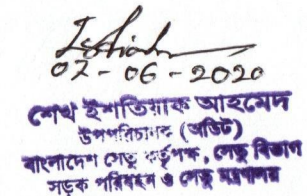 07-06-2020
শেখ ইশতিয়াক আহমেদ
উপপরিচালক (অডিট)
বাংলাদেশ সেতু কর্তৃপক্ষ, সেতু বিভাগ
সড়ক পরিবহন ও সেতু মন্ত্রণালয়